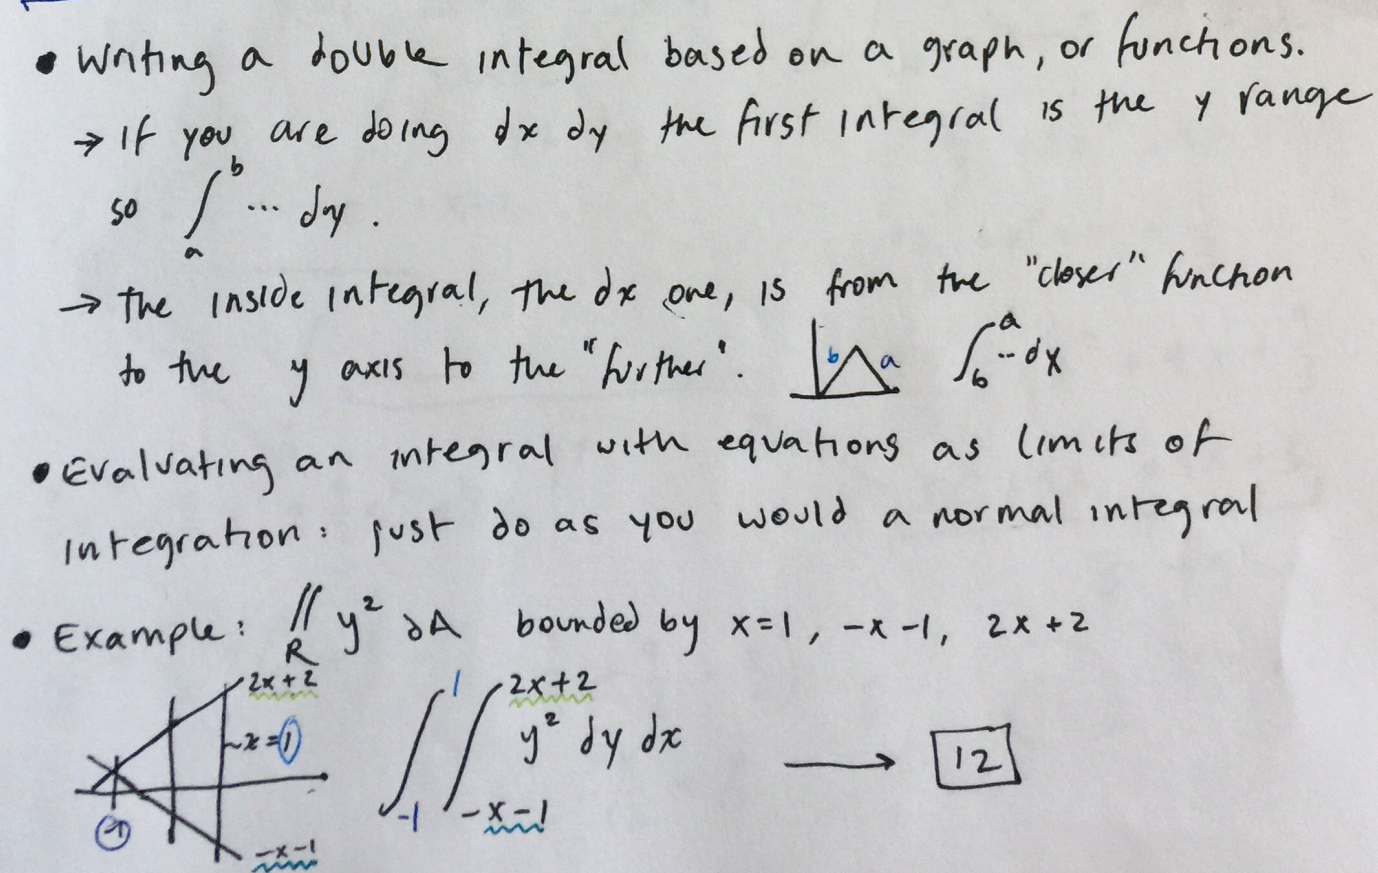 • Writing a double integral based on a graph, or functions.
→ If you are doing dx dy the first integral is the y range
so ∫_a^b ... dy.
→ the inside integral, the dx one, is from the "closer" function
to the y axis to the "further". b a ∫_b^a ... dx
• Evaluating an integral with equations as limits of
integration: just do as you would a normal integral
• Example: ∬_R y² dA bounded by x=1, -x-1, 2x+2
2x+2 x=1 -1 -x-1
∫_-1^1 ∫_-x-1^2x+2 y² dy dx → 12